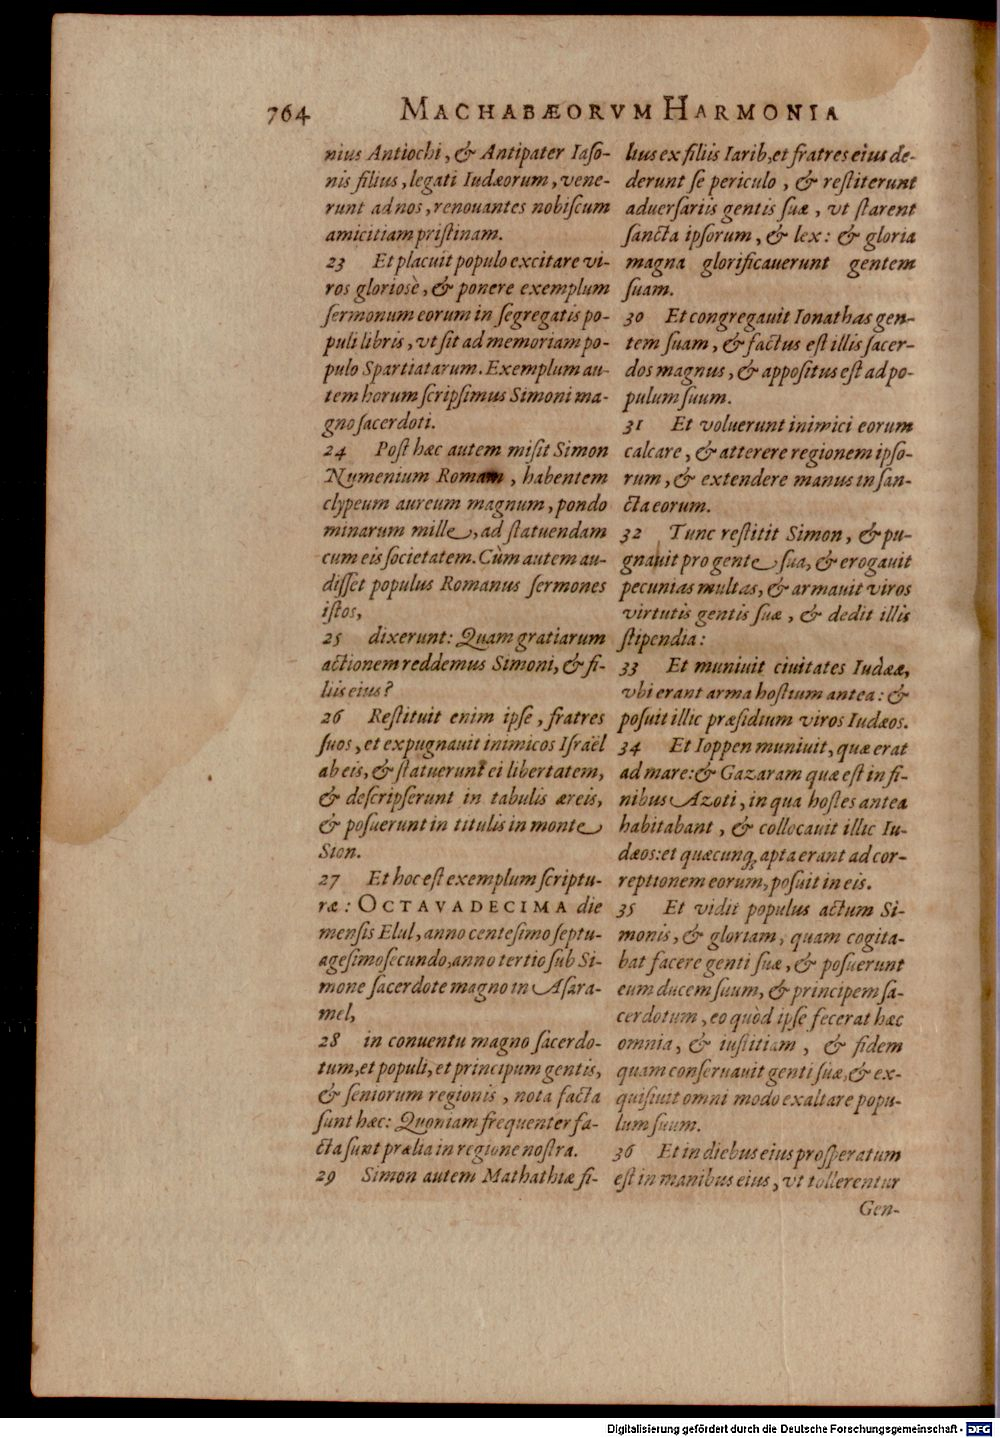 764 MACHABÆORVM HARMONIA
nius Antiochi, & Antipater Iaſo-
nis filius, legati Iudæorum, vene-
runt ad nos, renouantes nobiſcum
amicitiam priſtinam.
23 Et placuit populo excitare vi-
ros gloriosè, & ponere exemplum
ſermonum eorum in ſegregatis po-
puli libris, vt ſit ad memoriam po-
pulo Spartiatarum. Exemplum au-
tem horum ſcripſimus Simoni ma-
gno ſacerdoti.
24 Poſt hæc autem miſit Simon
Numenium Romam, habentem
clypeum aureum magnum, pondo
minarum mille, ad ſtatuendam
cum eis ſocietatem. Cùm autem au-
diſſet populus Romanus ſermones
iſtos,
25 dixerunt: Quam gratiarum
actionem reddemus Simoni, & fi-
liis eius?
26 Reſtituit enim ipſe, fratres
ſuos, et expugnauit inimicos Iſraël
ab eis, & ſtatuerunt ei libertatem,
& deſcripſerunt in tabulis æreis,
& poſuerunt in titulis in monte
Sion.
27 Et hoc eſt exemplum ſcriptu-
ræ: OCTAVADECIMA die
menſis Elul, anno centeſimo ſeptu-
ageſimoſecundo, anno tertio ſub Si-
mone ſacerdote magno in Aſara-
mel,
28 in conuentu magno ſacerdo-
tum, et populi, et principum gentis,
& ſeniorum regionis, nota facta
ſunt hæc: Quoniam frequenter fa-
cta ſunt prælia in regione noſtra.
29 Simon autem Mathathiæ fi-
lius ex filiis Iarib, et fratres eius de-
derunt ſe periculo, & reſtiterunt
aduerſariis gentis ſuæ, vt ſtarent
ſancta ipſorum, & lex: & gloria
magna glorificauerunt gentem
ſuam.
30 Et congregauit Ionathas gen-
tem ſuam, & factus eſt illis ſacer-
dos magnus, & appoſitus eſt ad po-
pulum ſuum.
31 Et voluerunt inimici eorum
calcare, & atterere regionem ipſo-
rum, & extendere manus in ſan-
cta eorum.
32 Tunc reſtitit Simon, & pu-
gnauit pro gente ſua, & erogauit
pecunias multas, & armauit viros
virtutis gentis ſuæ, & dedit illis
ſtipendia:
33 Et muniuit ciuitates Iudææ,
vbi erant arma hoſtium antea: &
poſuit illic præſidium viros Iudæos.
34 Et Ioppen muniuit, quæ erat
ad mare: & Gazaram quæ eſt in fi-
nibus Azoti, in qua hoſtes antea
habitabant, & collocauit illic Iu-
dæos: et quæcunq; apta erant ad cor-
reptionem eorum, poſuit in eis.
35 Et vidit populus actum Si-
monis, & gloriam, quam cogita-
bat facere genti ſuæ, & poſuerunt
eum ducem ſuum, & principem ſa-
cerdotum, eo quòd ipſe fecerat hæc
omnia, & iuſtitiam, & fidem
quam conſeruauit genti ſuæ, & ex-
quiſiuit omni modo exaltare popu-
lum ſuum.
36 Et in diebus eius proſperatum
eſt in manibus eius, vt tollerentur
Gen-
Digitalisierung gefördert durch die Deutsche Forschungsgemeinschaft - DFG